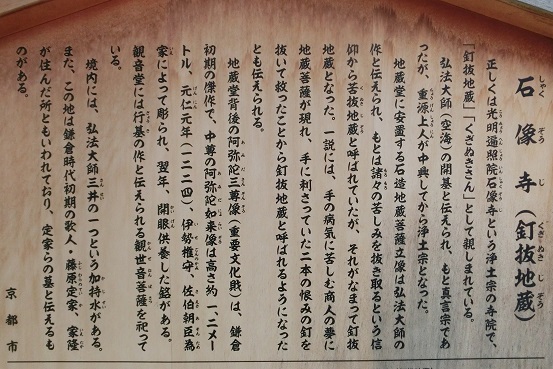 石像寺（釘抜地蔵）
正しくは光明遍照院石像寺という浄土宗の寺院で、
「釘抜地蔵」「くぎぬきさん」として親しまれている。
弘法大師（空海）の開基と伝えられ、もと真言宗であ
ったが、重源上人が中興してから浄土宗となった。
地蔵堂に安置する石造地蔵菩薩立像は弘法大師の
作と伝えられ、もとは諸々の苦しみを抜き取るという信
仰から苦抜地蔵と呼ばれていたが、それがなまって釘抜
地蔵となった。一説には、手の病気に苦しむ商人の夢に
地蔵菩薩が現れ、手に刺さっていた二本の恨みの釘を
抜いて救ったことから釘抜地蔵と呼ばれるようになった
とも伝えられる。
地蔵堂背後の阿弥陀三尊像（重要文化財）は、鎌倉
初期の傑作で、中尊の阿弥陀如来像は高さ約一・二メー
トル、元仁元年（一二二四）、伊勢権守、佐伯朝臣為
家によって彫られ、翌年、開眼供養した銘がある。
観音堂には行基の作と伝えられる観世音菩薩を祀って
いる。
境内には、弘法大師三井の一つという加持水がある。
また、この地は鎌倉時代初期の歌人・藤原定家、家隆
が住んだ所ともいわれており、定家らの墓と伝えるも
のがある。
京都市